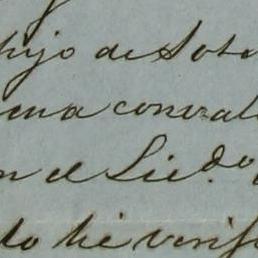 hijo de Soto
una conval
n el Lic.do
do he verif